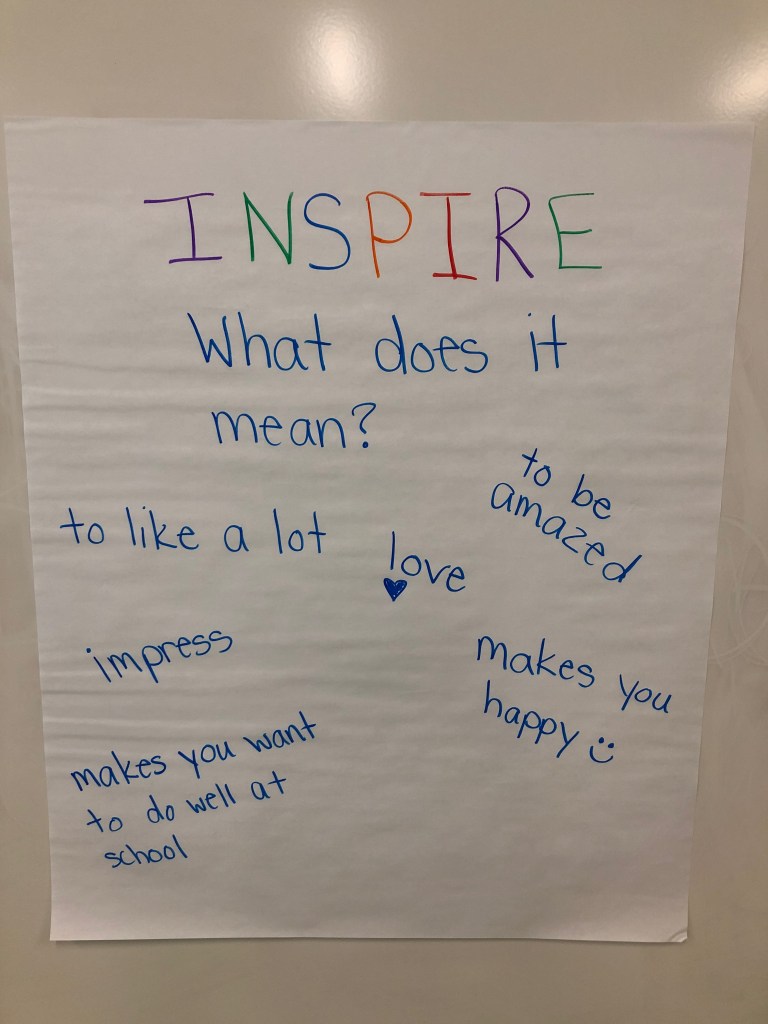 INSPIRE
What does it
mean?
to be
amazed
to like a lot
love
impress
makes you
happy
makes you want
to do well at
school